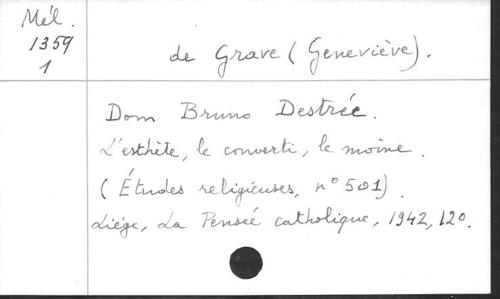 Mél.
1359
1
de Grave (Geneviève).
Dom Bruno Destrée.
L'esthète, le converti, le moine.
(Études religieuses, n° 501)
Liége, La Pensée catholique, 1942, 12°.